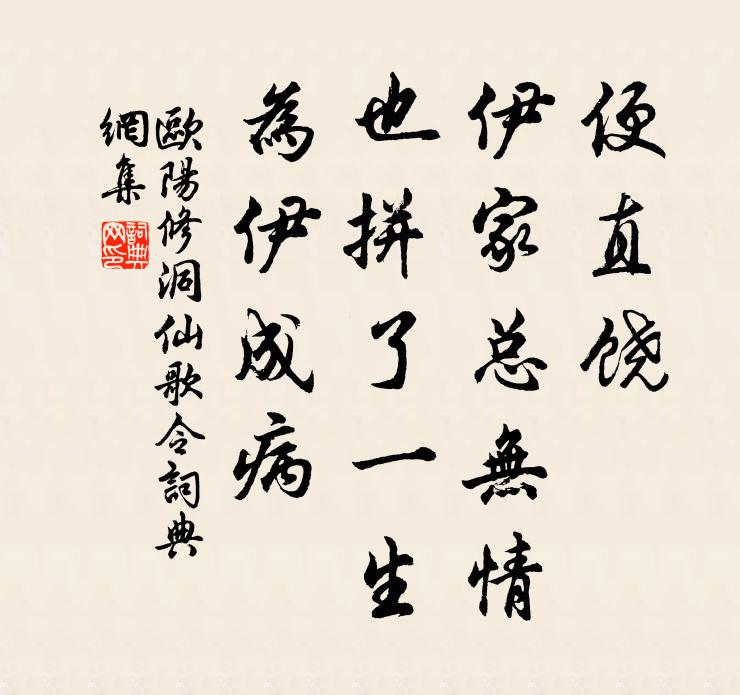 便直饶
伊家总無情
也拼了一生
為伊成病
歐陽修洞仙歌令詞典
網集
詞典
网印